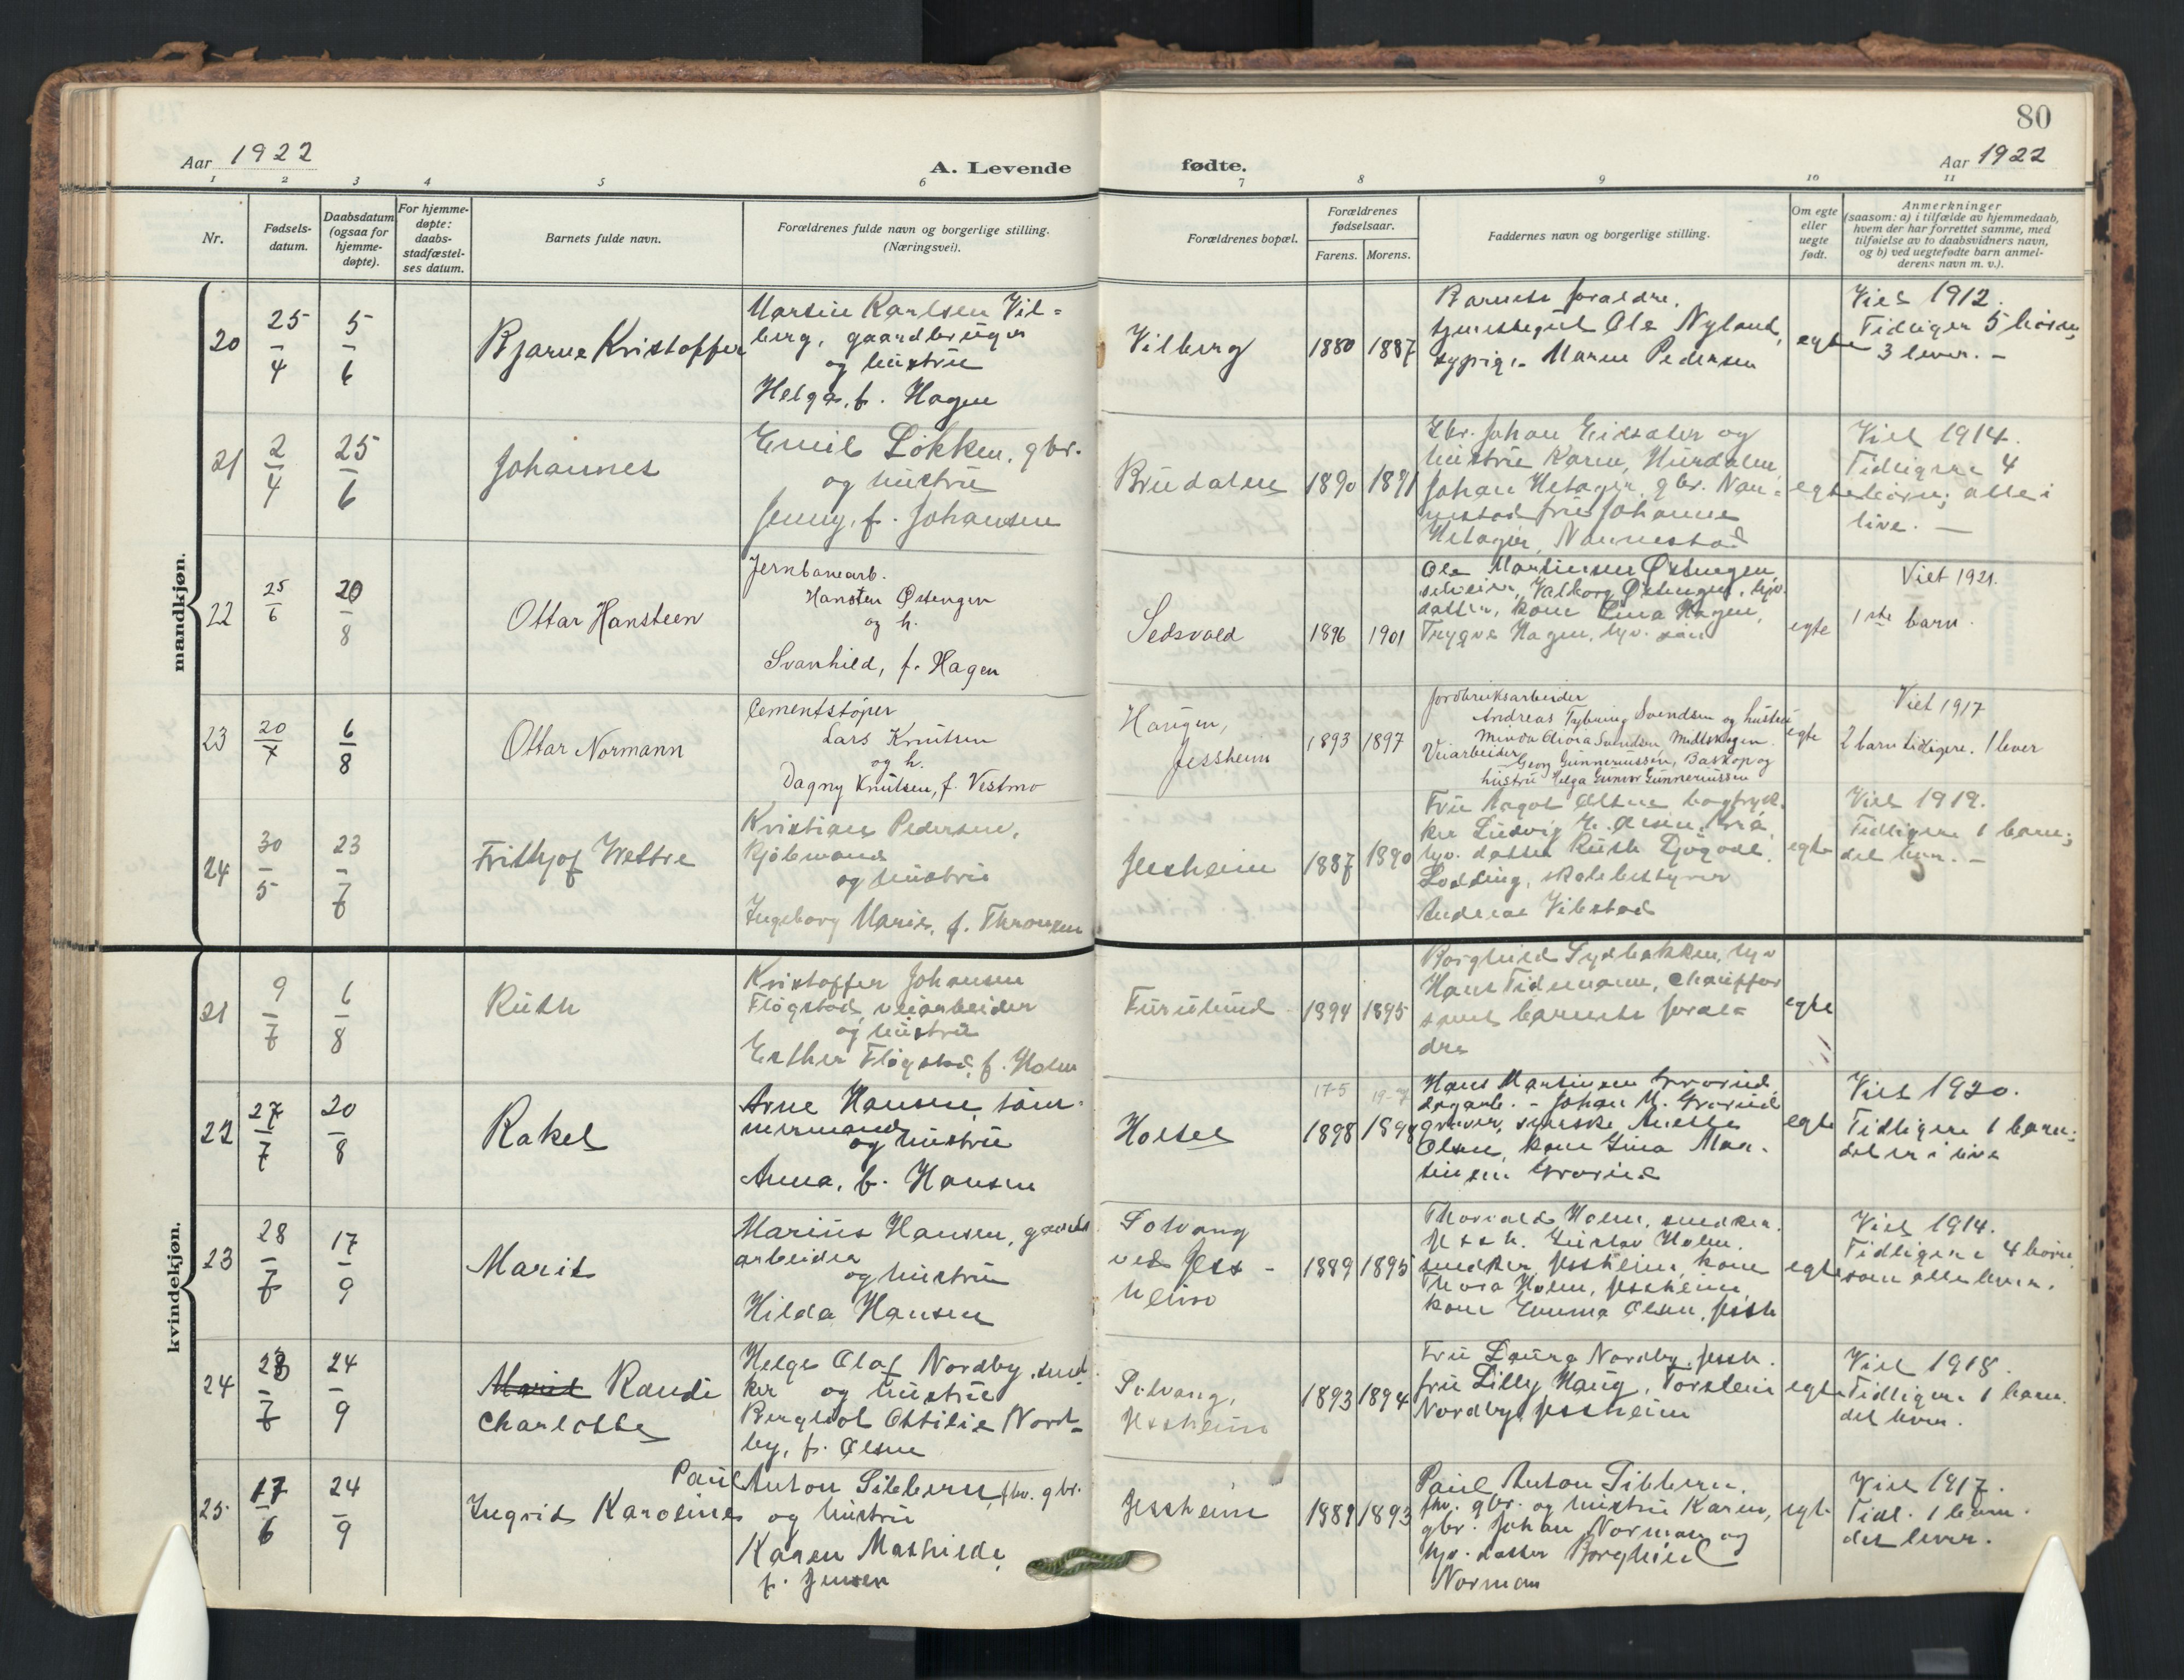 80
Aar 1922
A. Levende
fødte.
Aar 1922
1 2 3 4 5 6 7 8 9 10 11
Nr.
Fødsels-
datum.
Daabsdatum
(ogsaa for
hjemme-
døpte).
For hjemme-
døpte:
daabs-
stadfæstel-
ses datum.
Barnets fulde navn.
Forældrenes fulde navn og borgerlige stilling.
(Næringsvei).
Forældrenes bopæl.
Forældrenes
fødselsaar.
Farens. Morens.
Faddernes navn og borgerlige stilling.
Om egte
eller
uegte
født.
Anmerkninger
(saasom: a) i tilfælde av hjemmedaab,
hvem der har forrettet samme, med
tilføielse av to daabsvidners navn,
og b) ved uegtefødte barn anmel-
derens navn m. v.).
mandkjøn.
20
25/4
5/6
Bjarne Kristoffer
Martin Karlsen Vil-
berg, gaardbruger
og hustru
Helga, f. Hagen
Vilberg
1880 1887
Barnets foraldre,
Ole Nyland,
Maren Pedersen
egte
Viet 1912.
Tidliger 5 børn,
3 lever. -
21
2/4
25/6
Johannes
Emil Løkken, gbr.
og hustru
Jenny, f. Johansen
Brudalen
1890 1891
Gbr. Johan Eidsater og
hustru Karen, Hurdalen,
Johan Helager, gbr. Nan-
nestad fru Johanne
Helager, Nannestad
egte
Viet 1914.
Tidligere 4
børn; alle i
live. -
22
25/6
20/8
Ottar Hansteen
Jernbanearb.
Hansten Østengen
og h.
Svanhild, f. Hagen
Sedsvold
1896 1901
Ole Martinsen Østengen
selveier, Valborg Østengen, hjv.
datter, kone Lina Hagen,
Trygve Hagen, hjv. søn
egte
Viet 1921.
1ste barn.
23
20/7
6/8
Ottar Normann
Cementstøper
Lars Knutsen
og h.
Dagny Knutsen, f. Vestmo
Haugen,
Jessheim
1893 1897
Jordbruksarbeider
Andreas Tybring Svendsen og hustru
Minda Olivia Svendsen, Midtskogen.
Veiarbeider
Georg Gunnerussen, Baskop og
hustru Helga Gunvor Gunnerussen
egte
Viet 1917
2 barn tidligere. 1 lever
24
30/5
23/7
Frithjof Wettre
Kristian Pedersen,
kjøbmand
og hustru
Ingeborg Marie, f. Thronsen
Jessheim
1887 1890
Fru Aagot Olsen, bogtryk-
ker Ludvig
hjv. datter Ruth
skolebestyrer
Andreas Vibstad
egte
Viet 1919.
Tidligere 1 barn;
det lever. -
kvindekjøn.
21
9/7
6/8
Ruth
Kristoffer Johansen
Fløgstad, veiarbeider
og hustru
Esther Fløgstad, f. Holm
Furulund
1894 1895
Borghild Sydbakken, hjv
Hans Tidemann, chauffør
samt barnets foræl-
dre
egte
22
27/7
20/8
Rakel
Arne Hansen, tøm-
mermand
og hustru
Anna, f. Hansen
Holsel
17-5 19-7
1898 1898
Hans Martinsen Grorud,
dagarb. - Johan M. Grorud
graver, svenske
Olsen, kone Gina Mar-
tinsen Grorud
egte
Viet 1920.
Tidligere 1 barn;
det er i live
23
28/7
17/9
Marit
Marius Hansen, gaards
arbeider
og hustru
Hilda Hansen
Solvang
ved Jess-
heim
1889 1895
Thorvald Holm, snedker.
Jessh. Gustav Holm.
snedker Jessheim, kone
Thora Holm, Jessheim,
kone Emma Olsen, Jessh
egte
Viet 1914.
Tidligere 4 børn
som alle lever.
24
28/7
24/9
Marit Randi
Charlotte
Helge Olaf Nordby, sned-
ker og hustru
Bergliot Ottilie Nord-
by, f. Olsen
Solvang,
Jessheim
1893 1894
Fru Laura Nordby, Jessh.
fru Lilly Haug, Torstein
Nordby, Jessheim
egte
Viet 1918.
Tidligere 1 barn.
det lever.
25
17/6
24/9
Ingrid Karoline
Paul Anton Sibbern, fhv. gbr.
og hustru
Karen Mathilde,
f. Jensen
Jessheim
1889 1893
Paul Anton Sibbern,
fhv. gbr. og hustru Karen,
gbr. Johan Norman og
hjv. datter Borghild
Norman
egte
Viet 1917.
Tidl. 1 barn.
det lever.